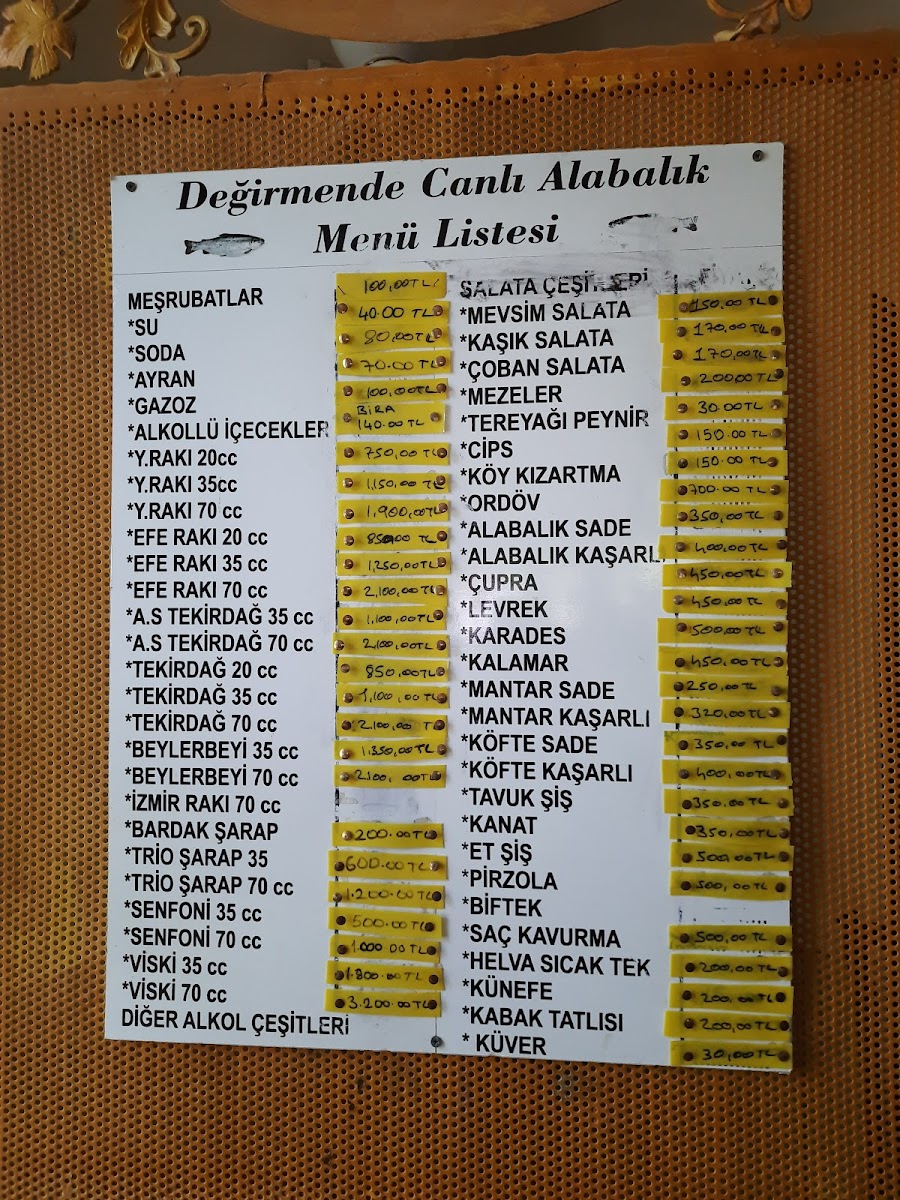 Değirmende Canlı Alabalık
Menü Listesi
MEŞRUBATLAR 100,00TL
*SU 40.00 TL
*SODA 80,00TL
*AYRAN 70.00TL
*GAZOZ 100,00TL
*ALKOLLÜ İÇECEKLER BİRA 140.00 TL
*Y.RAKI 20cc 750,00TL
*Y.RAKI 35cc 1,150,00 TL
*Y.RAKI 70 cc 1,900,00TL
*EFE RAKI 20 cc 850,00 TL
*EFE RAKI 35 cc 1,250,00TL
*EFE RAKI 70 cc 2,100,00TL
*A.S TEKİRDAĞ 35 cc 1,100,00TL
*A.S TEKİRDAĞ 70 cc 2,100,00TL
*TEKİRDAĞ 20 cc 850,00TL
*TEKİRDAĞ 35 cc 1,100,00TL
*TEKİRDAĞ 70 cc 2,100,00 TL
*BEYLERBEYİ 35 cc 1.350,00TL
*BEYLERBEYİ 70 cc 2100,00TL
*İZMİR RAKI 70 cc
*BARDAK ŞARAP 200.00TL
*TRİO ŞARAP 35 600.00TL
*TRİO ŞARAP 70 cc 1.200.00TL
*SENFONİ 35 cc 500.00TL
*SENFONİ 70 cc 1.000 00 TL
*VİSKİ 35 cc 1.800.00TL
*VİSKİ 70 cc 3.200.00TL
DİĞER ALKOL ÇEŞİTLERİ
SALATA ÇEŞİTLERİ
*MEVSİM SALATA 150.00 TL
*KAŞIK SALATA 170,00TL
*ÇOBAN SALATA 170,00TL
*MEZELER 200,00TL
*TEREYAĞI PEYNİR 30.00TL
*CİPS 150.00 TL
*KÖY KIZARTMA 150.00 TL
*ORDÖV 700.00 TL
*ALABALIK SADE 350,00TL
*ALABALIK KAŞARLI 400,00TL
*ÇUPRA 450,00TL
*LEVREK 450,00TL
*KARADES 500,00TL
*KALAMAR 450,00TL
*MANTAR SADE 250,00TL
*MANTAR KAŞARLI 320,00TL
*KÖFTE SADE 350,00TL
*KÖFTE KAŞARLI 400,00TL
*TAVUK ŞİŞ 350,00TL
*KANAT 350,00TL
*ET ŞİŞ 500,00TL
*PİRZOLA 500,00TL
*BİFTEK
*SAÇ KAVURMA 500,00TL
*HELVA SICAK TEK 200,00TL
*KÜNEFE 200,00TL
*KABAK TATLISI 200,00TL
* KÜVER 30,00TL